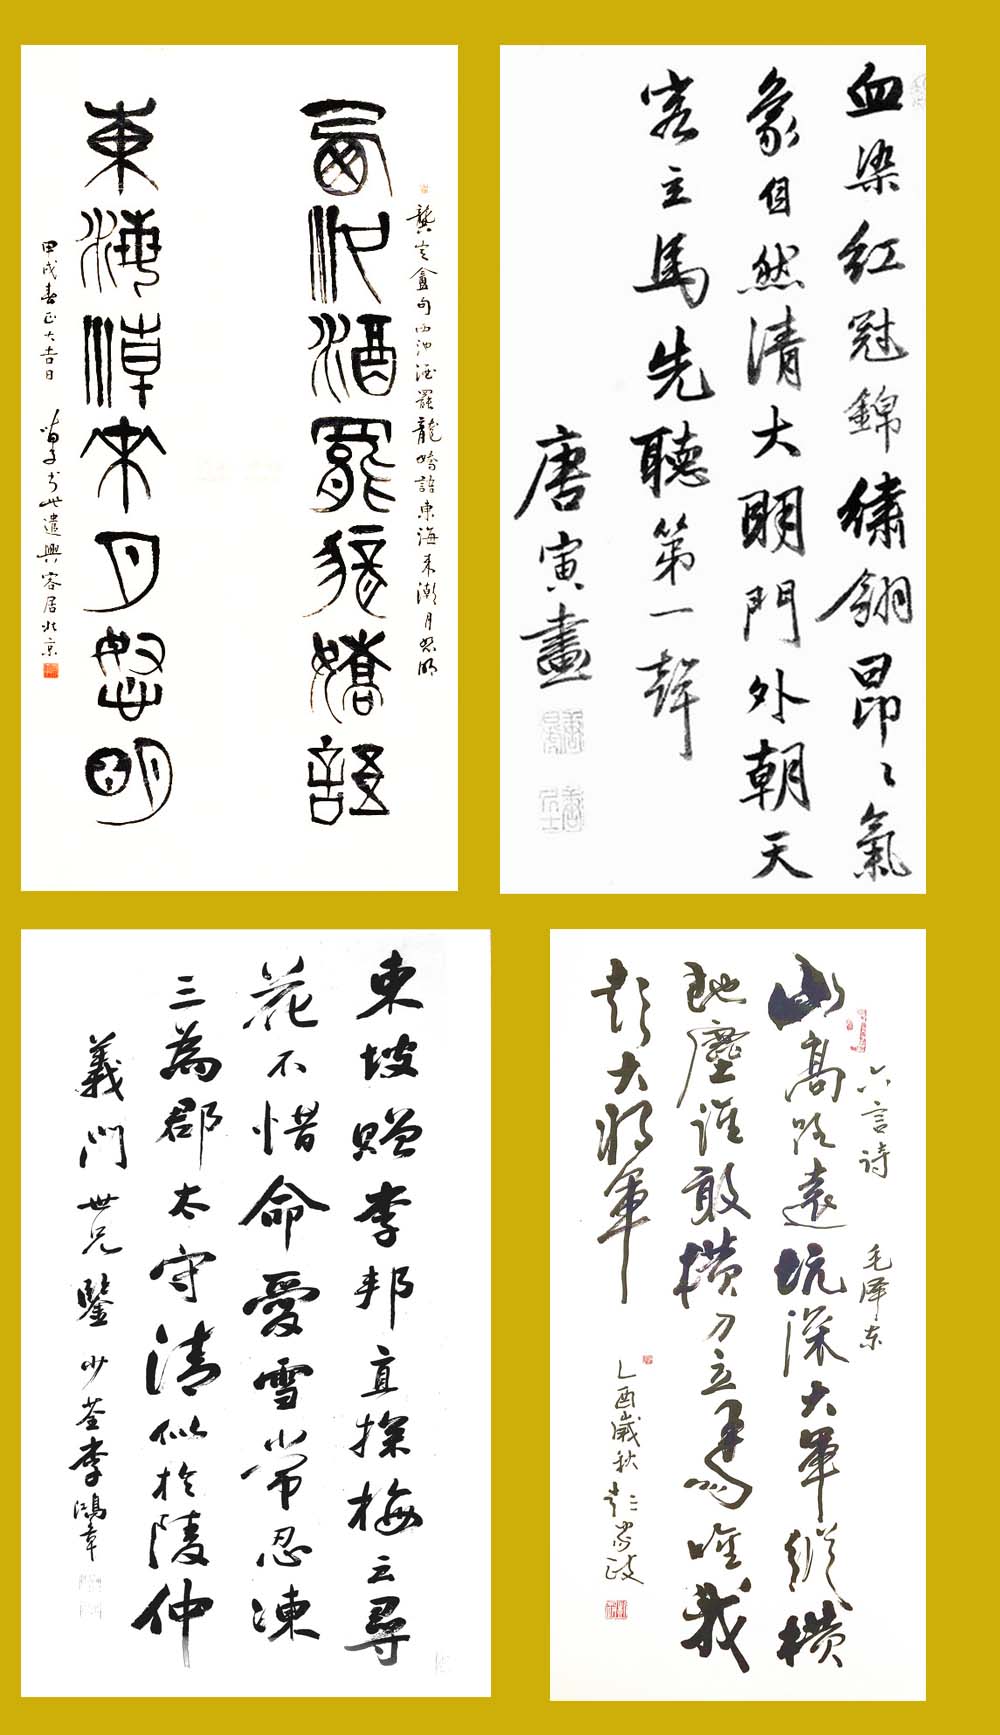 龔定盦句西池酒罷龍嬌語東海来潮月怒明
西池酒罷龍嬌語
東海潮來月怒明
甲戌春正大吉日 书此遣興客居北京
血染紅冠錦繡翎昂〻氣
象自然清大明門外朝天
客立馬先聽第一聲
唐寅畫
東坡贈李邦直探梅云尋
花不惜命愛雪常忍凍
三為郡太守清似於陵仲
義門世兄鑒 少荃李鴻章
六言诗 毛泽东
山高路遠坑深大軍縱横
馳塵誰敢横刀立馬唯我
彭大将軍
乙酉歲秋